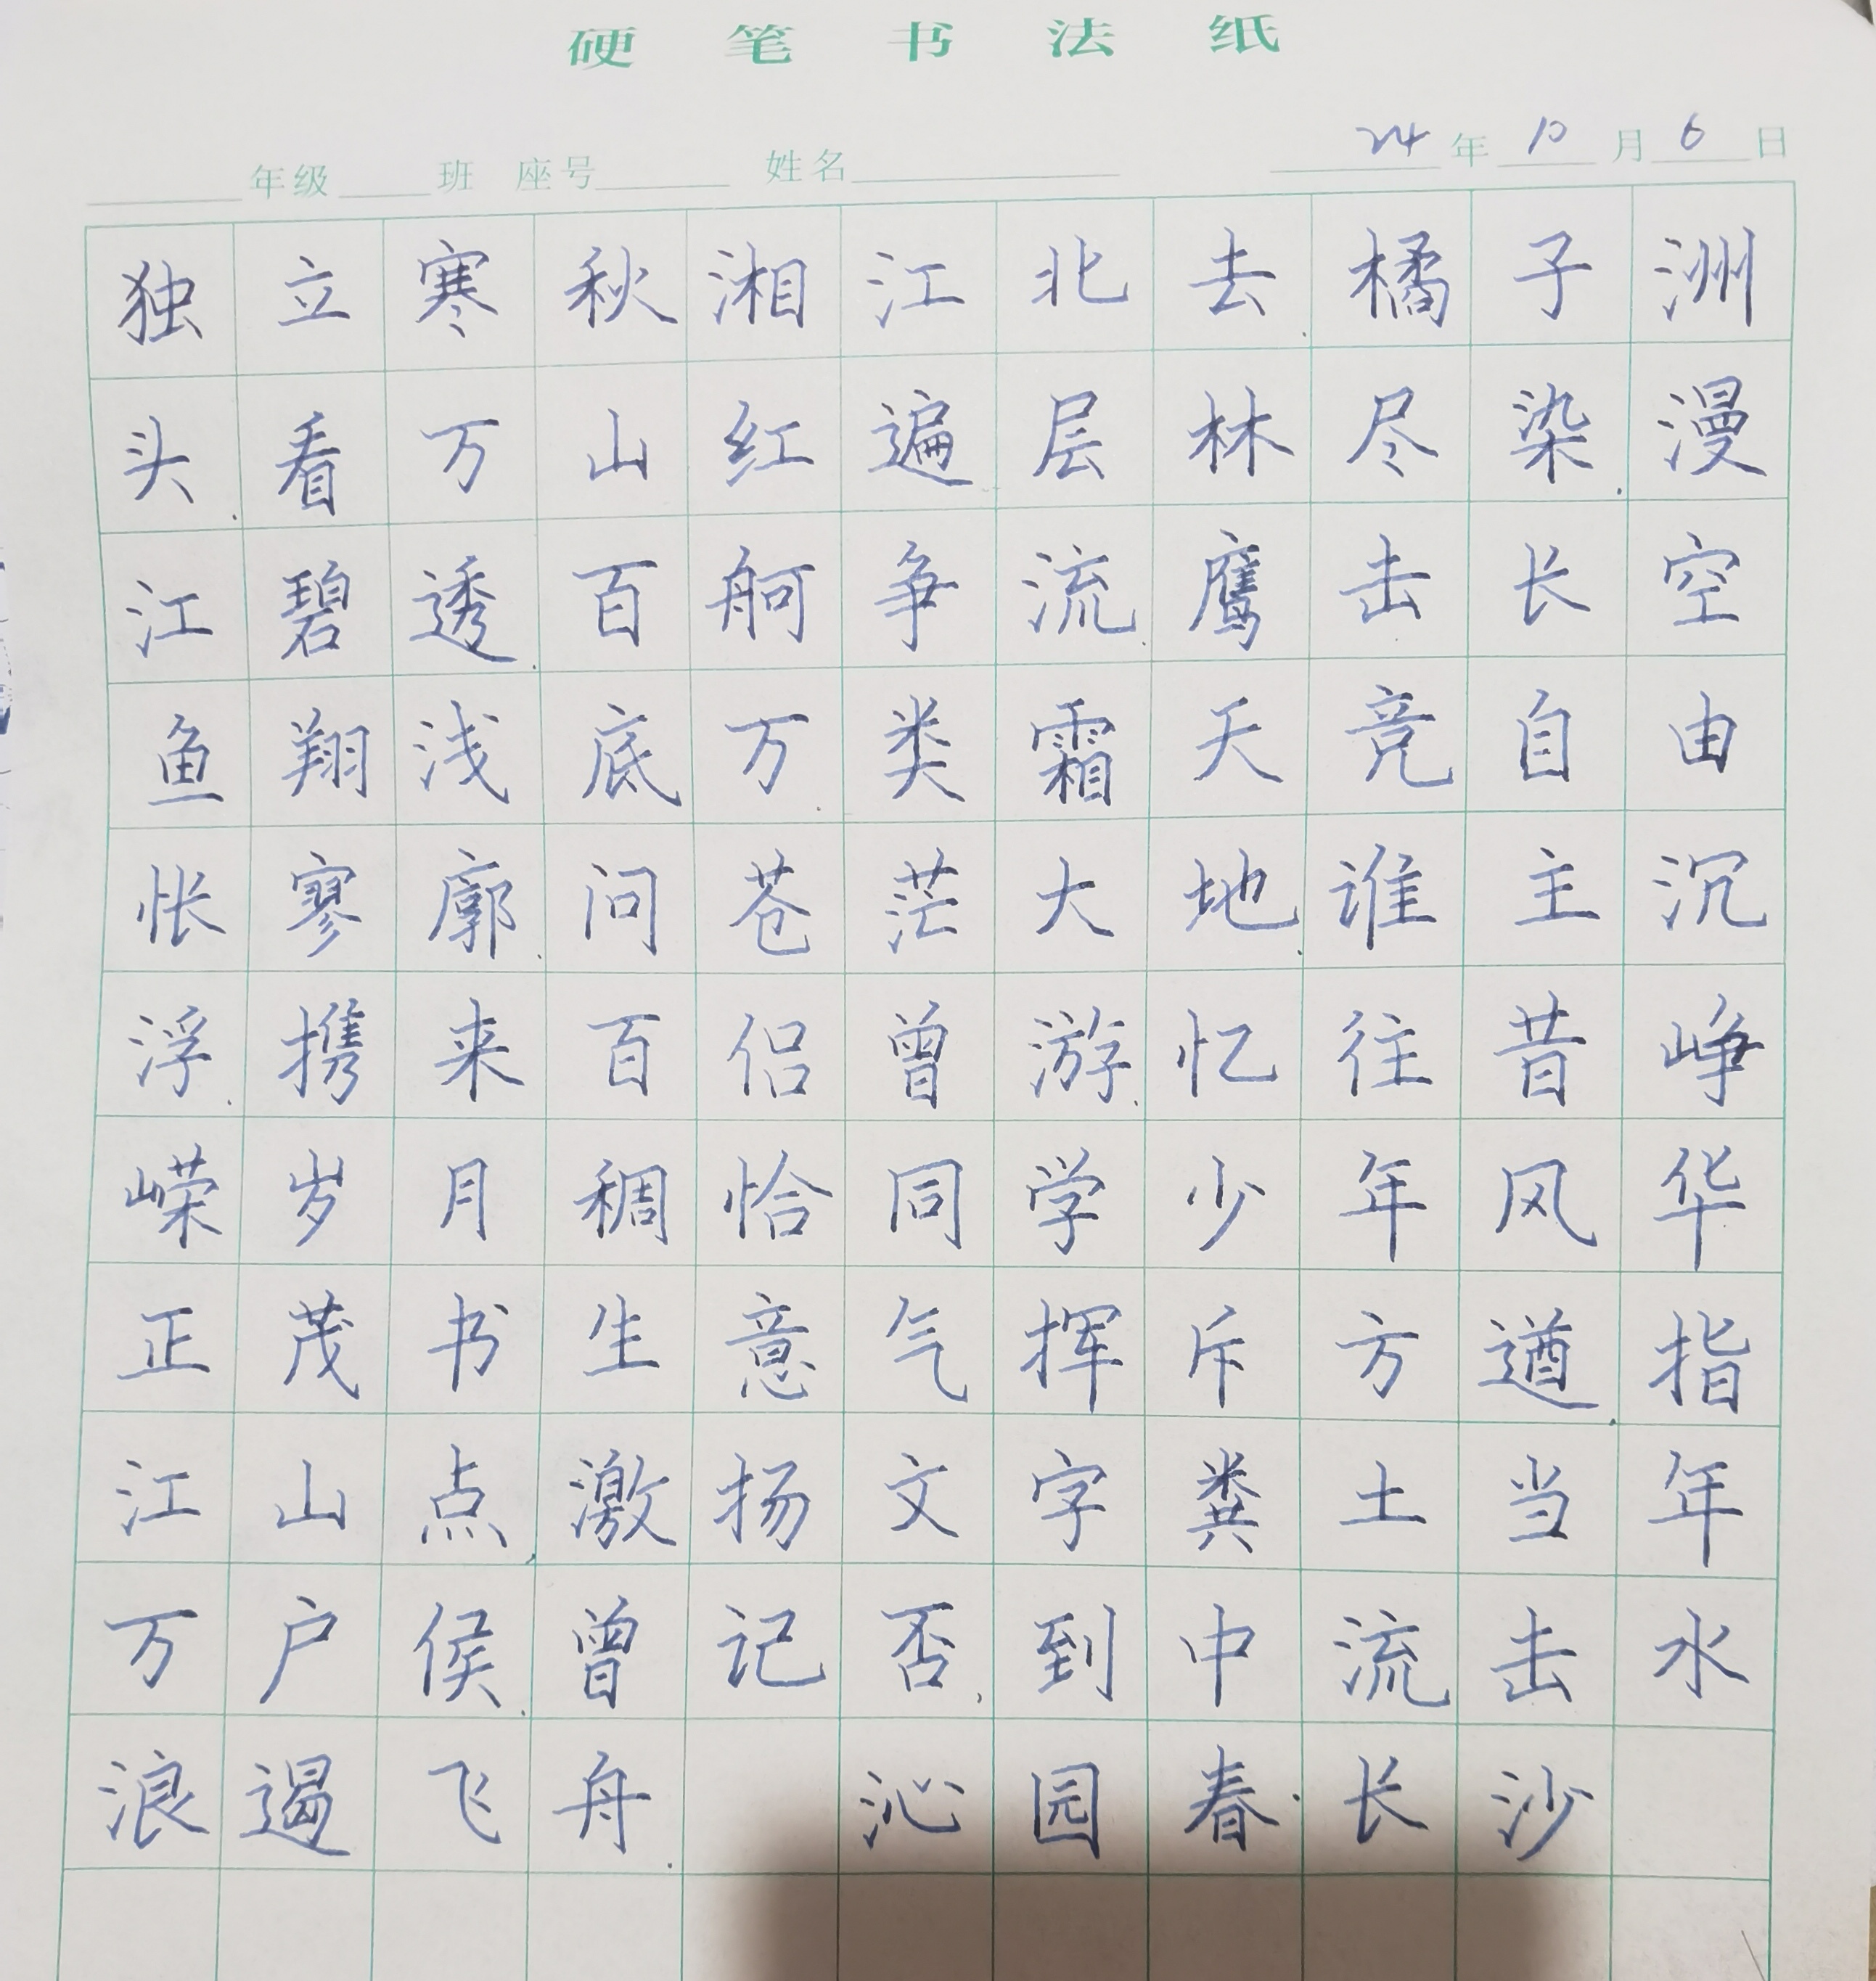 硬笔书法纸
年级 班 座号 姓名 24年10月6日
独立寒秋湘江北去.橘子洲
头.看万山红遍.层林尽染.漫
江碧透.百舸争流.鹰击长空
鱼翔浅底万.类霜天竞自由
怅寥廓.问苍茫大地.谁主沉
浮.携来百侣曾游.忆往昔峥
嵘岁月稠恰同学少年风华
正茂书生意气挥斥方遒.指
江山点,激扬文字粪土当年
万户侯.曾记否,到中流击水
浪遏飞舟. 沁园春·长沙